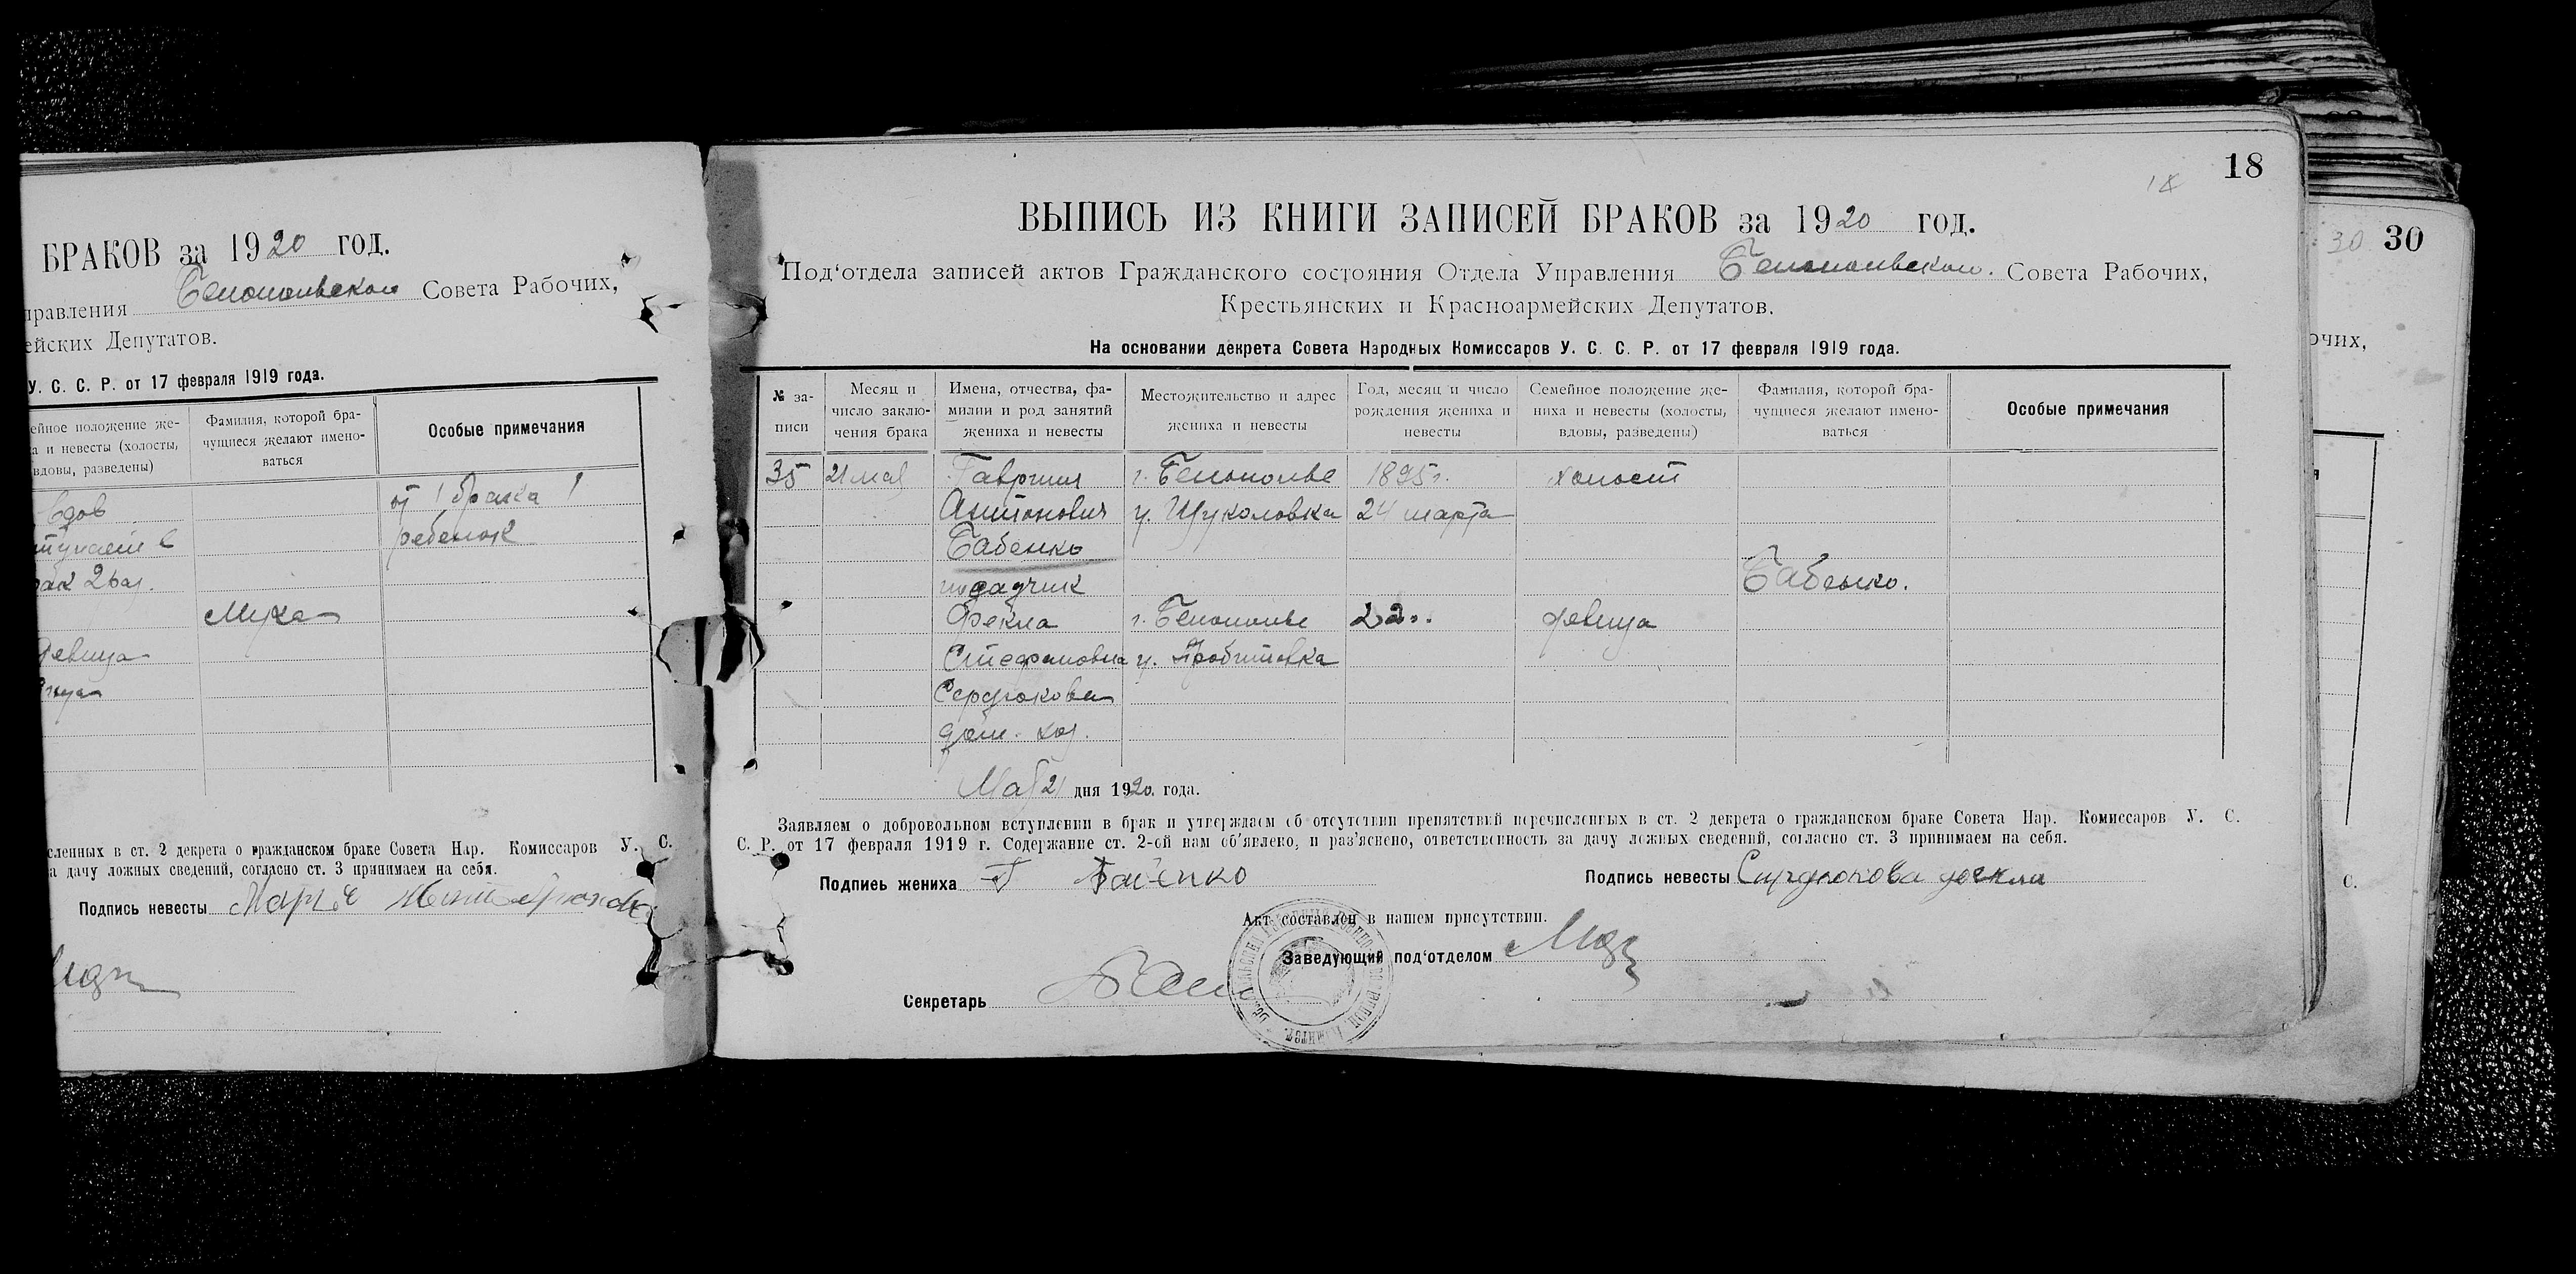 БРАКОВ за 1920 год.
правления Белопольского Совета Рабочих,
ейских Депутатов.
У. С. С. Р. от 17 февраля 1919 года.
ейное положение же-
а и невесты (холосты,
вдовы, разведены)
Фамилия, которой бра-
чущиеся желают имено-
ваться
Особые примечания
вдов
от 1 брака 1
ступает в
ребенок
рак 2 раз.
девица
сленных в ст. 2 декрета о гражданском браке Совета Нар. Комиссаров У. С.
а дачу ложных сведений, согласно ст. 3 принимаем на себя.
Подпись невесты
18
18
ВЫПИСЬ ИЗ КНИГИ ЗАПИСЕЙ БРАКОВ за 1920 год.
Под‘отдела записей актов Гражданского состояния Отдела Управления Белопольского. Совета Рабочих,
Крестьянских и Красноармейских Депутатов.
На основании декрета Совета Народных Комиссаров У. С. С. Р. от 17 февраля 1919 года.
№ за-
писи
Месяц и
число заклю-
чения брака
Имена, отчества, фа-
милии и род занятий
жениха и невесты
Местожительство и адрес
жениха и невесты
Год, месяц и число
рождения жениха и
невесты
Семейное положение же-
ниха и невесты (холосты,
вдовы, разведены)
Фамилия, которой бра-
чущиеся желают имено-
ваться
Особые примечания
35 21 мая Гавриил г. Белополье 1895 г. холост
Антонович у. Шуколовка 24 марта
Бабенко
Бабенко.
Фекла г. Белополье 22 г. девица
Стефановна у.
Сердюкова
дом. хоз.
Мая 21 дня 1920. года.
Заявляем о добровольном вступлении в брак и утверждаем об отсутствии препятствий перечисленных в ст. 2 декрета о гражданском браке Совета Нар. Комиссаров У. С.
С. Р. от 17 февраля 1919 г. Содержание ст. 2-ой нам об‘явлено, и раз‘яснено, ответственность за дачу ложных сведений, согласно ст. 3 принимаем на себя.
Подпись жениха Г Бабенко
Подпись невесты Сирдюкова
Акт составлен в нашем присутствии.
Заведующий под‘отделом
Секретарь
30 30
очих,
С.